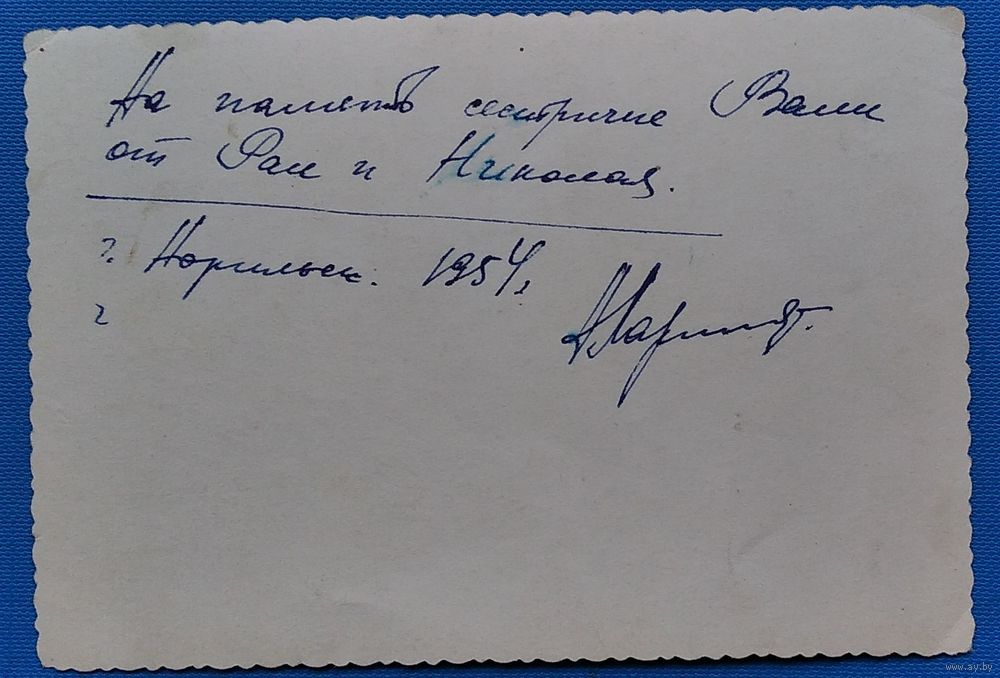 На память сестричке Вали
от Раи и Николая.
г. Норильск. 1954г
г
www.ay.by